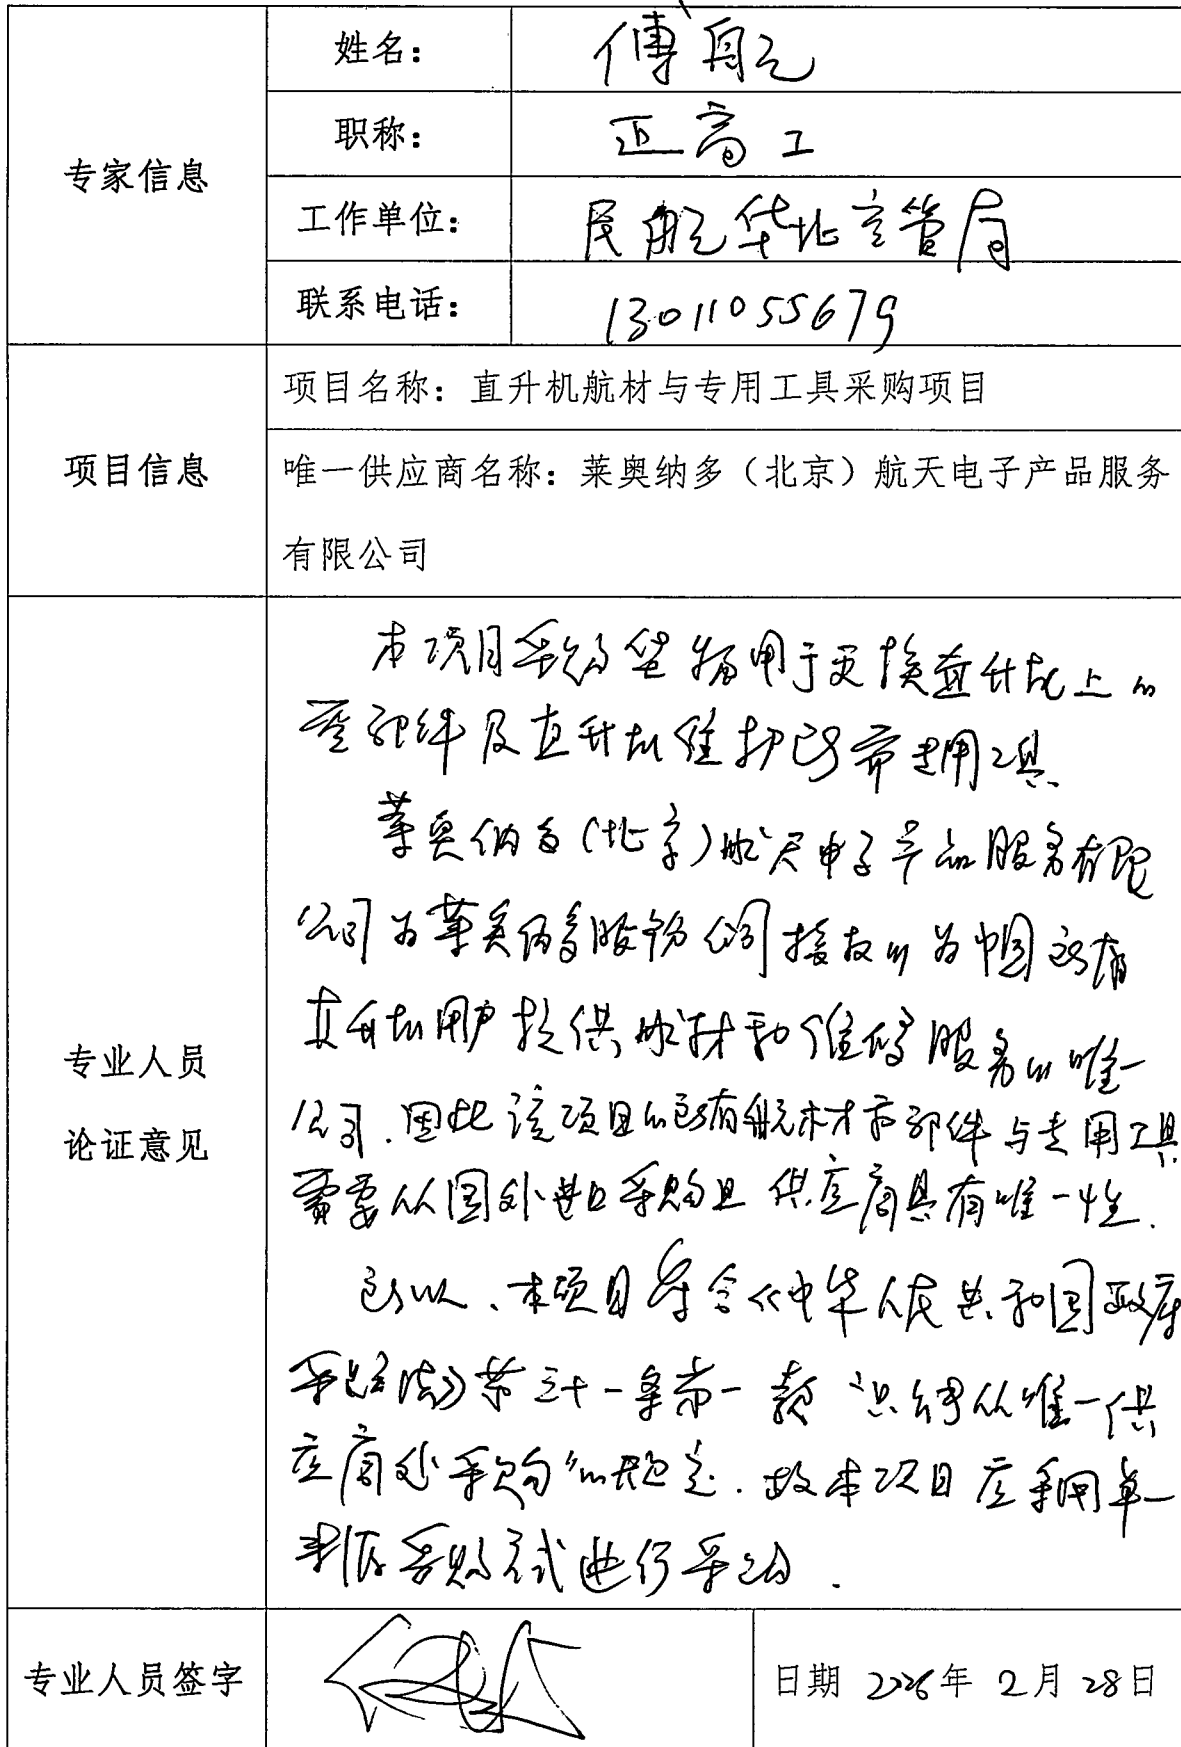 姓名：
傅航
职称：
正高工
专家信息
工作单位：
民航华北空管局
联系电话：
13011055679
项目名称：直升机航材与专用工具采购项目
项目信息
唯一供应商名称：莱奥纳多（北京）航天电子产品服务
有限公司
本项目采购货物用于更换直升机上的
零部件及直升机维护所需专用工具.
莱奥纳多(北京)航天电子产品服务有限
公司为莱奥纳多股份公司授权的为中国所有
直升机用户提供航材和维修服务的唯一
公司.因此该项目的所有航材零部件与专用工具
需要从国外进口采购且供应商具有唯一性.
专业人员
论证意见
所以、本项目符合《中华人民共和国政府
采购法》第三十一条第一款“只能从唯一供
应商处采购”的规定.故本项目应采用单一
来源采购方式进行采购.
专业人员签字
日期 2026年 2月 28日